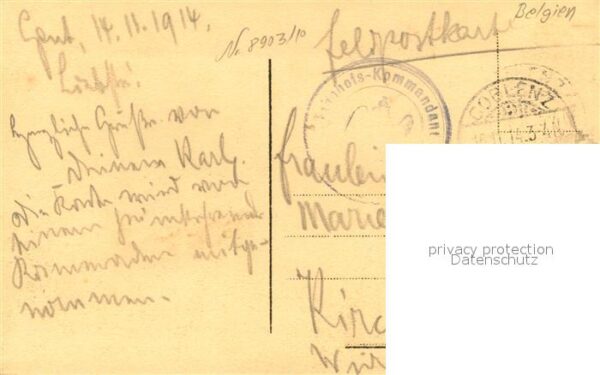 Gent, 14.11.1914.
Liebste!
Herzliche Grüße von
Deinem Karl.
Die Karte wird von
einem
Kameraden mitge-
nommen.
Nr. 8903/10
Feldpostkarte
Belgien
Bahnhofs-Kommandant
COBLENZ
Fräulein
Marie
Kirc
privacy protection
Datenschutz